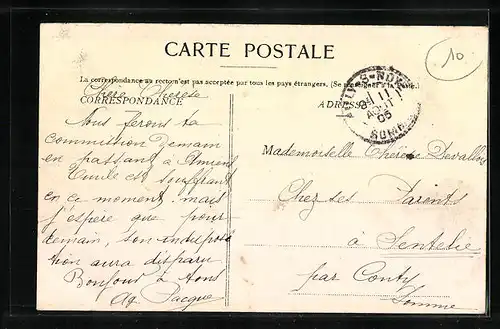 CARTE POSTALE
10
La correspondance au recto n'est pas acceptée par tous les pays étrangers. (Se renseigner à la Poste)
Chère Thérèse
CORRESPONDANCE
ADRESSE
11
AOUT
05
SOMME
Nous ferons ta
commission demain
en passant à Amiens
est souffrant
en ce moment mais
j'espère que pour
demain, son indisposi
tion aura disparu
Bonjour à tous
Pacque
Mademoiselle Thérèse Devallois
Chez ses Parents
à Sentelie
par Conty
Somme